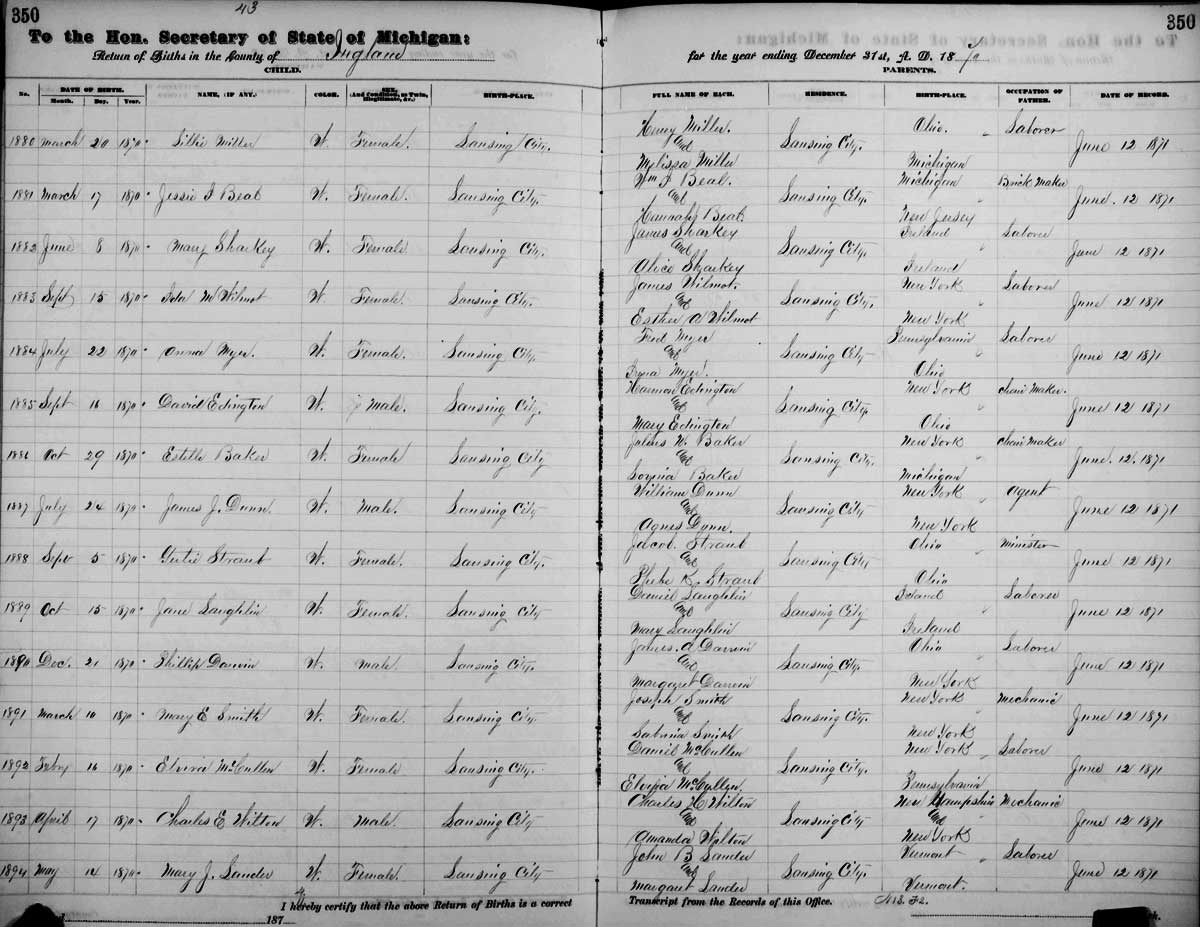 350 43 350
To the Hon. Secretary of State of Michigan:
Return of Births in the County of Ingham for the year ending December 31st, A. D. 1870
CHILD. PARENTS.
No. DATE OF BIRTH. NAME, (IF ANY.) COLOR. SEX, (And Condition, as Twin, Illegitimate, &c.) BIRTH-PLACE. FULL NAME OF EACH. RESIDENCE. BIRTH-PLACE. OCCUPATION OF FATHER. DATE OF RECORD.
Month. Day. Year.
1880 March 20 1870 Miller W. Female. Lansing City. Henry Miller. and Melissa Miller Lansing City. Ohio. Michigan Laborer June 12 1871
1881 March 17 1870 Jessie I Beal W. Female. Lansing City. Wm I Beal. and Hannah Beal Lansing City. Michigan New Jersey Brick Maker June. 12 1871
1882 June 8 1870 Mary Sharkey W. Female Lansing City. James Sharkey and Alice Sharkey Lansing City. Ireland Ireland Laborer June 12 1871
1883 Sept 15 1870 Ida M Wilmot W. Female. Lansing City. James Wilmot. and Esther A Wilmot Lansing City. New York New York Laborer June 12 1871
1884 July 22 1870 Anna Myer. W. Female. Lansing City. Fred Myer and Myer. Lansing City Pennsylvania Ohio Laborer June 12 1871
1885 Sept 16 1870 David Edington W. Male. Lansing City. Harmon Edington and Mary Edington Lansing City. New York Ohio Chair Maker. June 12 1871
1886 Oct 29 1870 Estella Baker W. Female Lansing City James W. Baker and Baker Lansing City. New York Michigan Chair Maker June. 12. 1871
1887 July 24 1870 James J. Dunn. W. Male. Lansing City William Dunn and Agnes Dunn. Lansing City New York New York Agent June 12 1871
1888 Sept 5 1870 Gertie Straub W. Female. Lansing City. Jacob. Straub and Phebe K. Straub Lansing City Ohio Ohio Minister June 12 1871
1889 Oct 15 1870 Jane Laughlin W. Female. Lansing City. Daniel Laughlin and Mary Laughlin Lansing City Ireland Ireland Laborer June 12 1871
1890 Dec. 21 1870 Phillip Darwin W. Male. Lansing City. James. A Darwin and Margaret Darwin Lansing City. Ohio New York Laborer June 12 1871
1891 March 10 1870 Mary E Smith W. Female. Lansing City. Joseph Smith and Sabrina Smith Lansing City. New York New York Mechanic June 12 1871
1892 Febry 16 1870 Elvira McCullen W. Female Lansing City. Daniel McCullen and McCullen. Lansing City. New York Pennsylvania Laborer June 12 1871
1893 April 17 1870 Charles E Wilton W. Male. Lansing City Charles H Wilton and Amanda Wilton Lansing City New Hampshire and New York Mechanic June 12 1871
1894 May 14 1870 Mary J. Lander W. Female. Lansing City John B Lander and Margaret Lander Lansing City. Vermont Vermont. Laborer June 12 1871
I hereby certify that the above Return of Births is a correct Transcript from the Records of this Office.
187